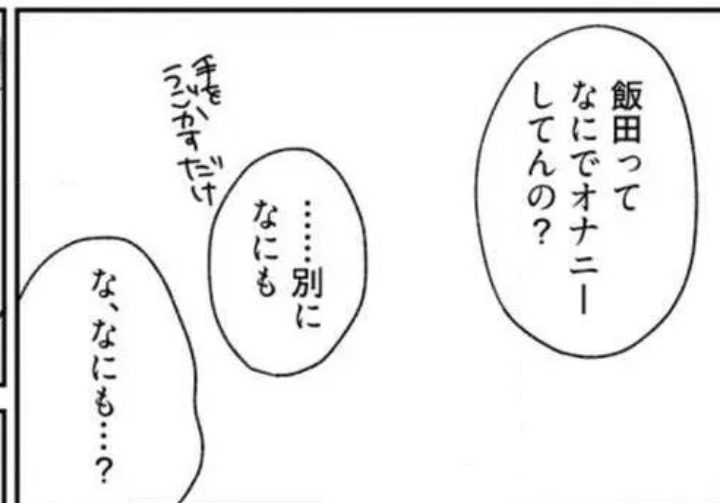 飯田って
なにでオナニー
してんの？
……別に
なにも
手を
うごかすだけ
な、なにも…？